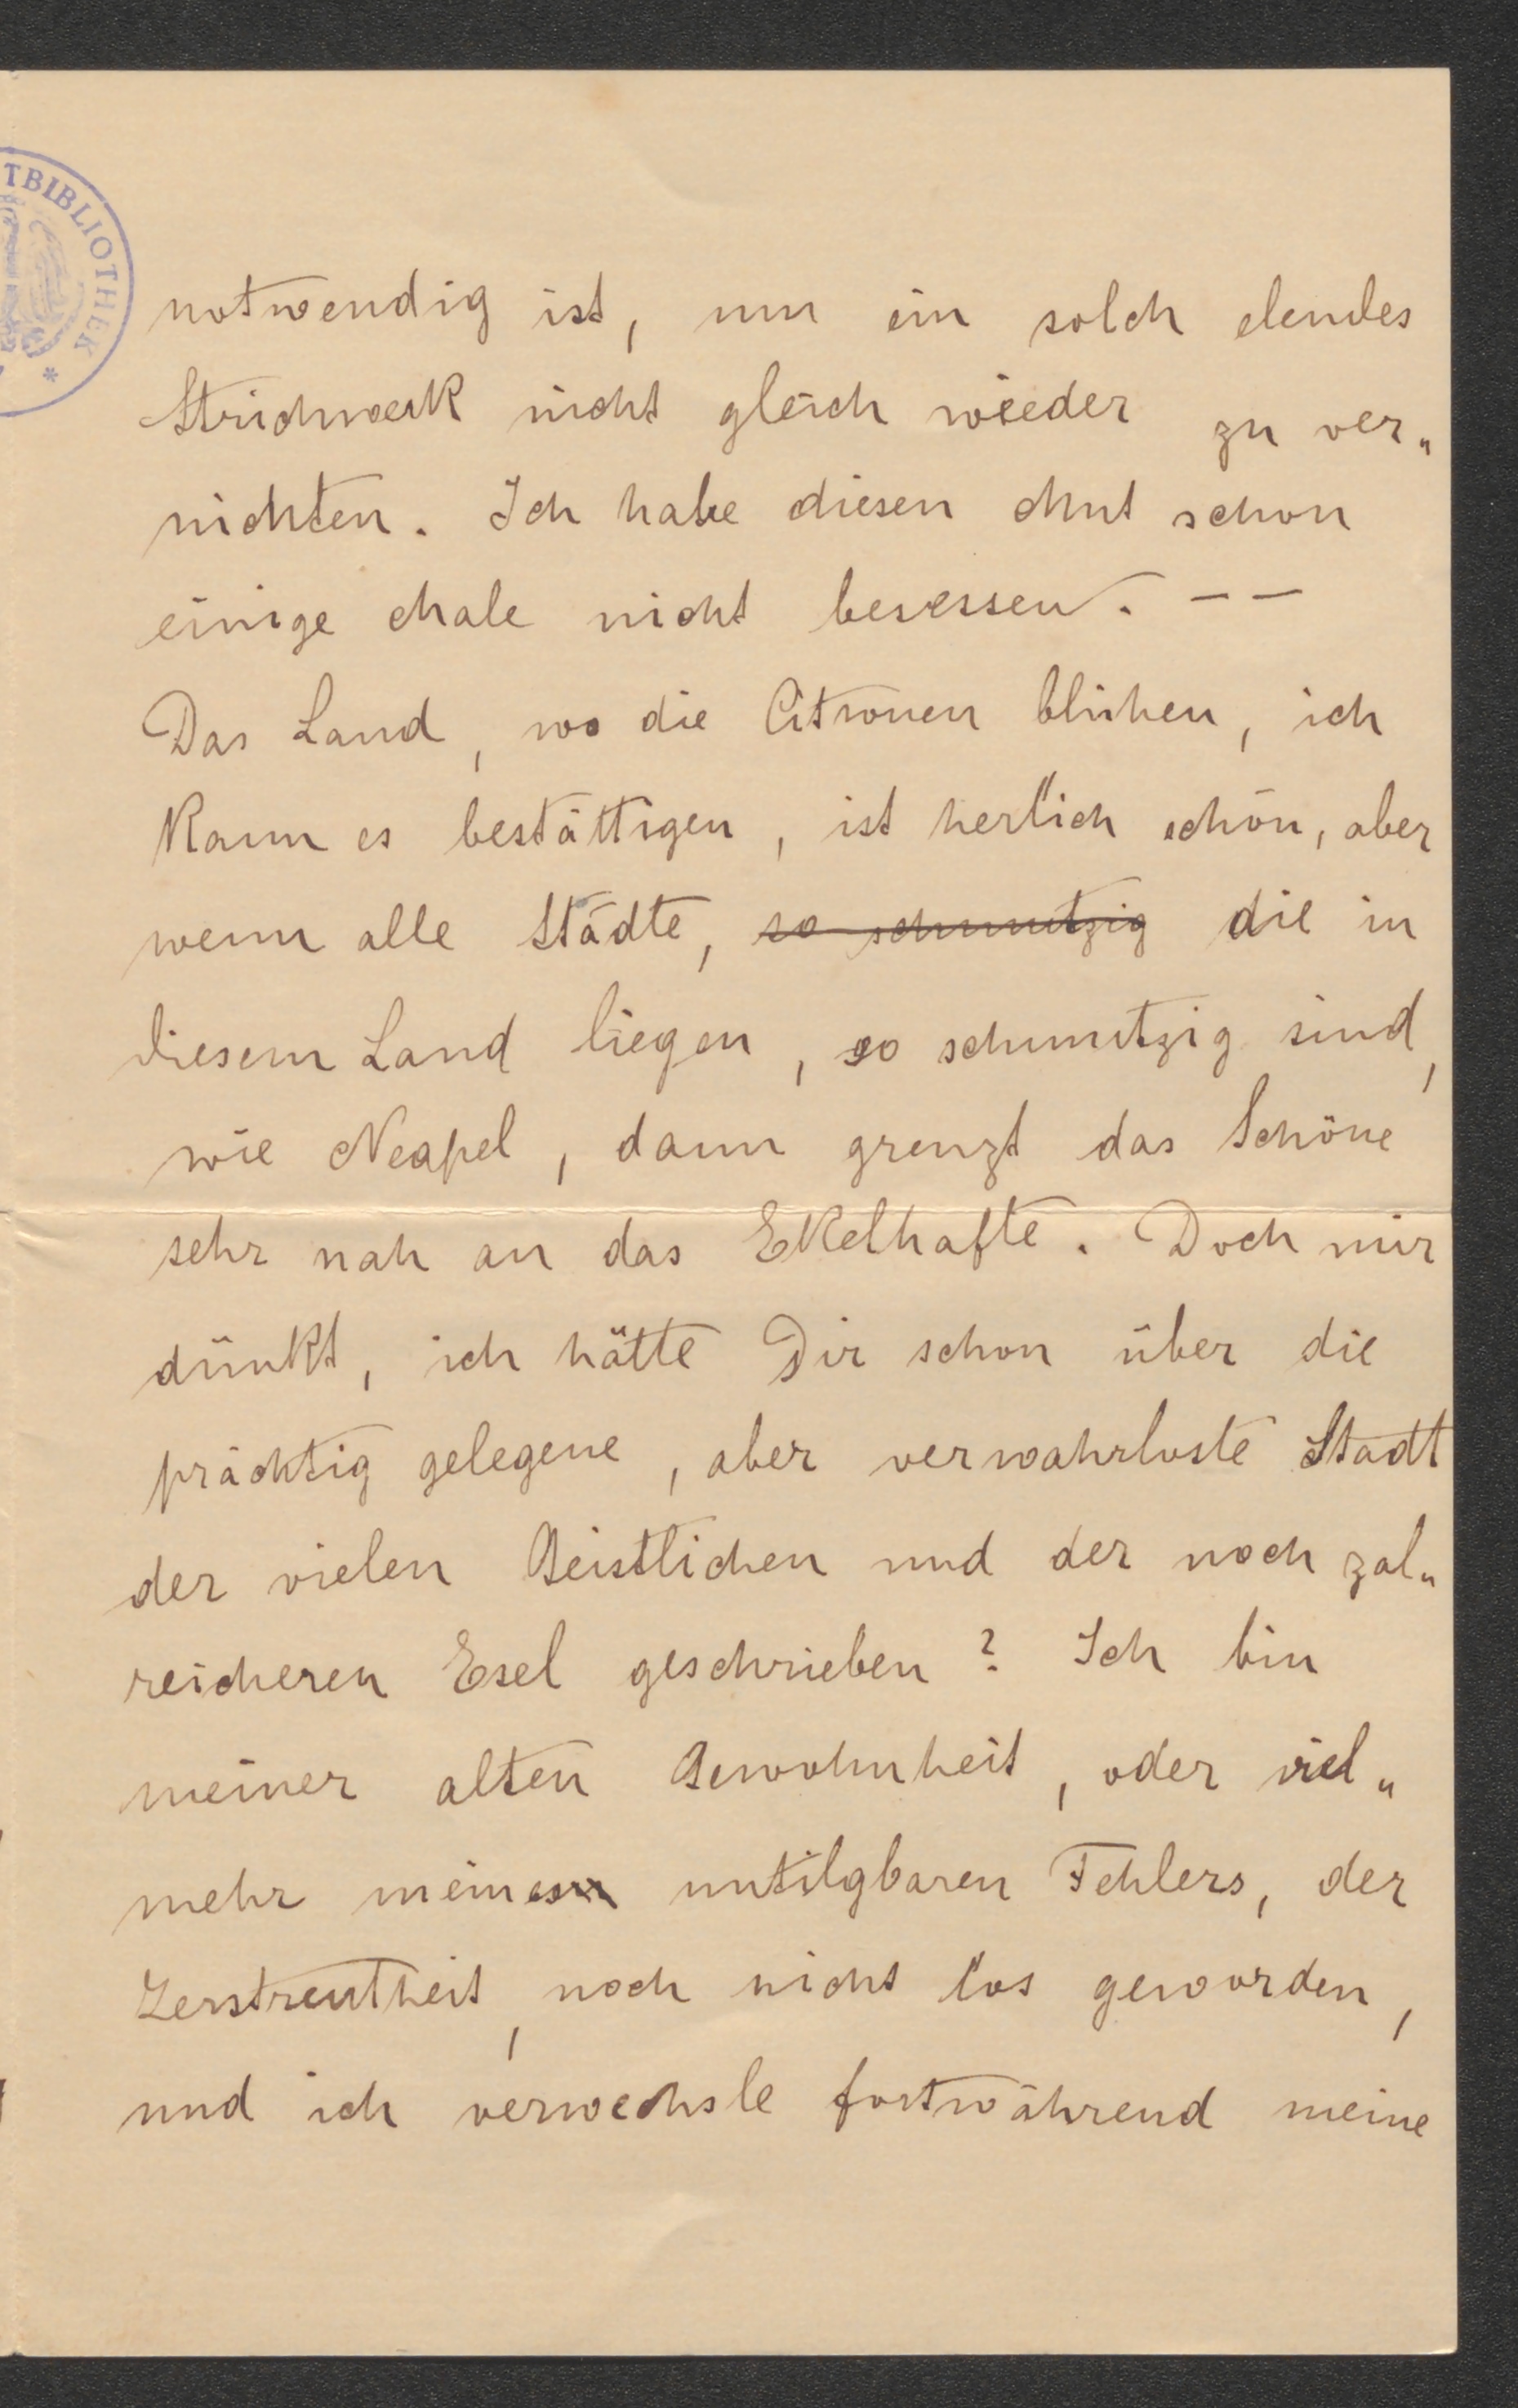 TBIBLIOTHEK *
notwendig ist, um ein solch elendes
Strichwerk nicht gleich wieder zu ver„
nichten. Ich habe diesen Mut schon
einige Male nicht besessen. – –
Das Land, wo die Citronen blühen, ich
kann es bestättigen, ist herlich schön, aber
wenn alle Städte, so schmutzig die in
diesem Land liegen, so schmutzig sind,
wie Neapel, dann grenzt das Schöne
sehr nah an das Ekelhafte. Doch mir
dünkt, ich hätte Dir schon über die
prächtig gelegene, aber verwahrloste Stadt
der vielen Geistlichen und der noch zal„
reicheren Esel geschrieben? Ich bin
meiner alten Gewohnheit, oder viel„
mehr meines untilgbaren Fehlers, der
Zerstreutheit, noch nicht los geworden,
und ich verwechsle fortwährend meine